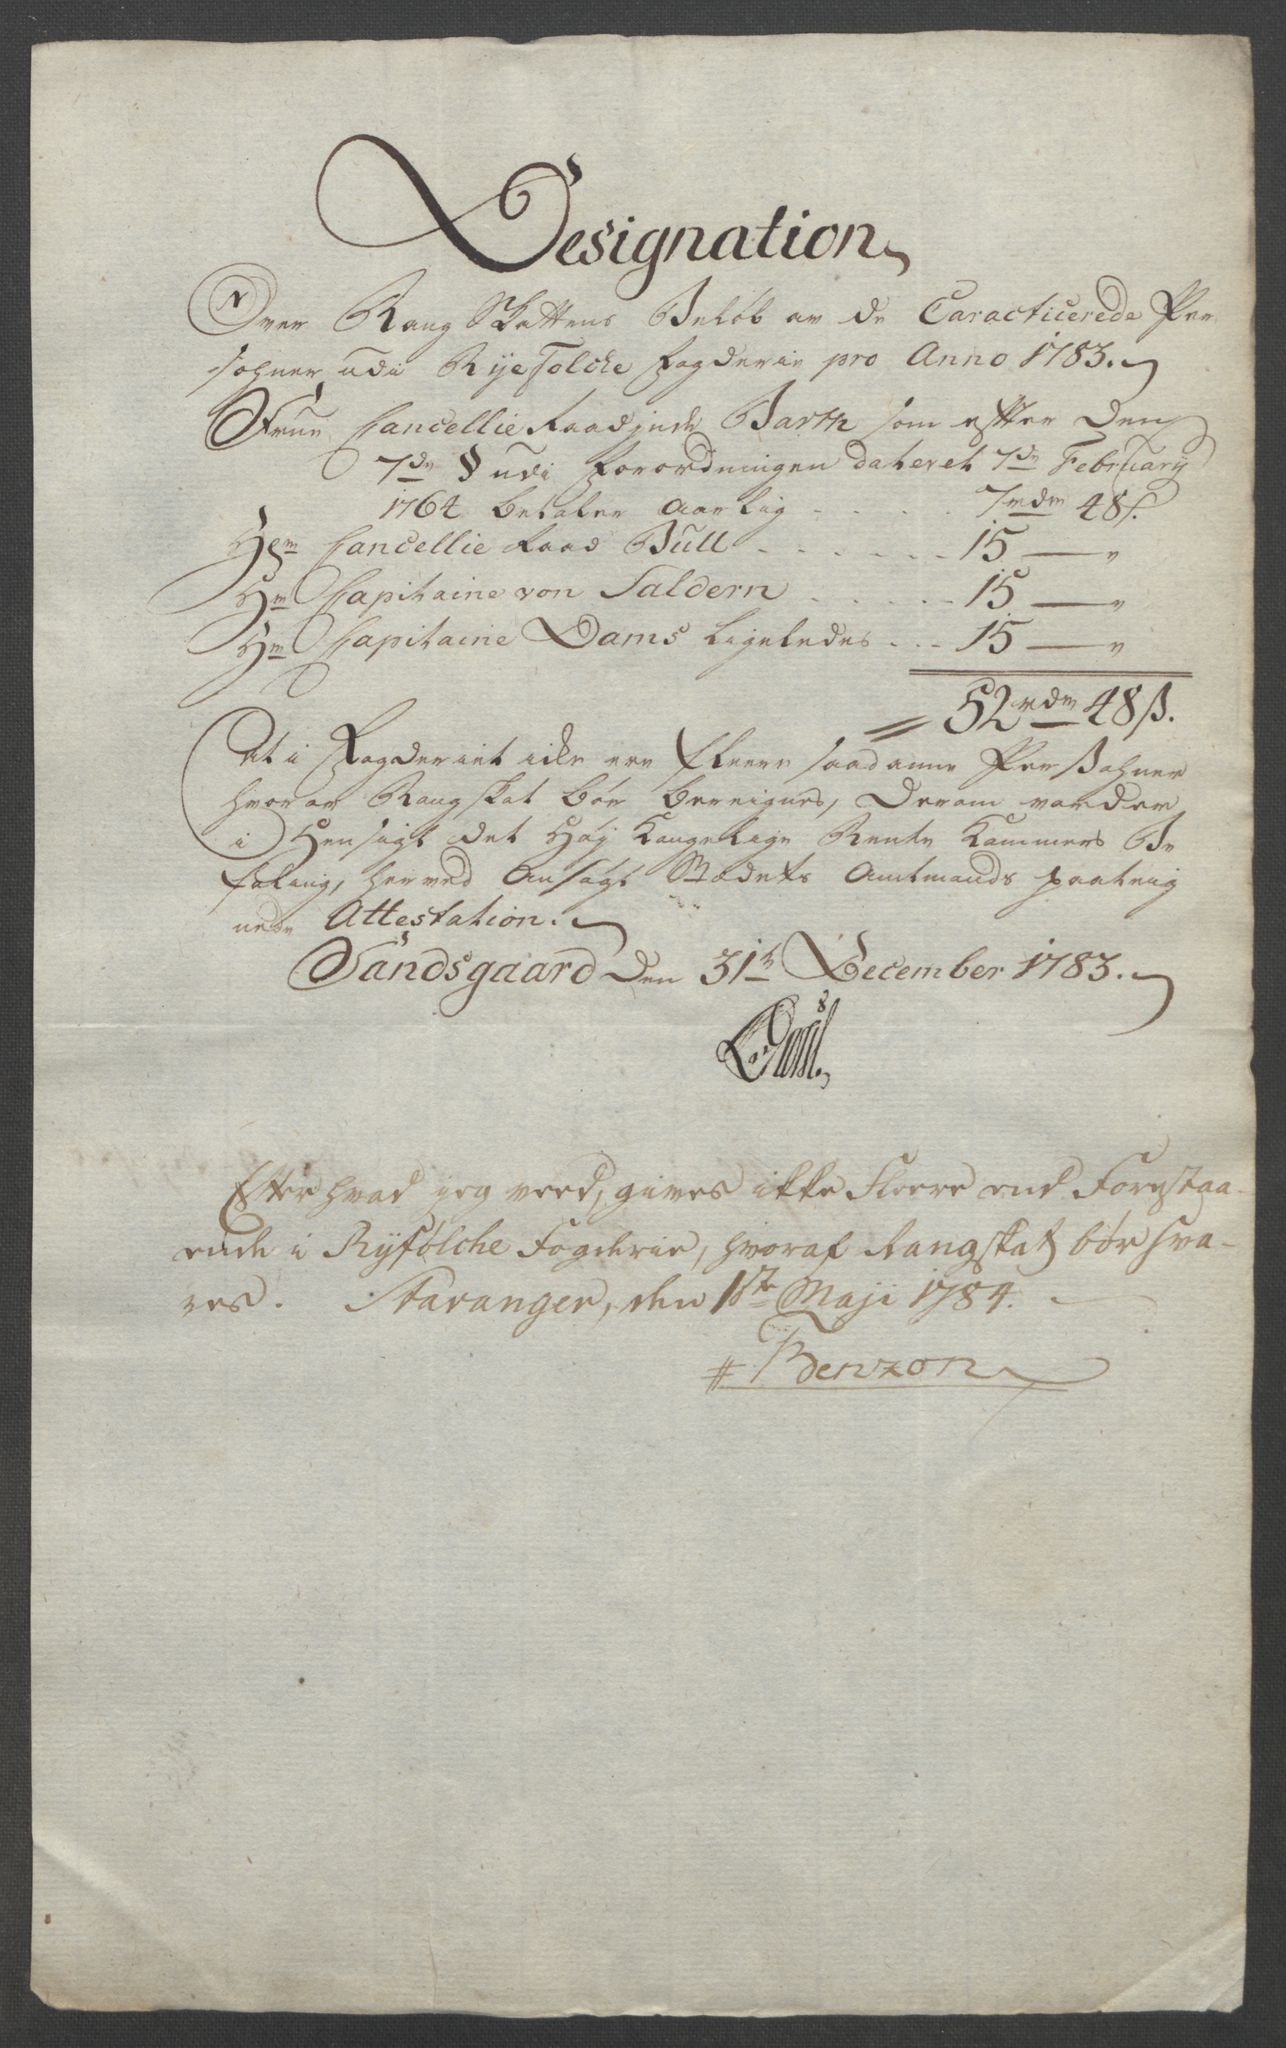 Designation
Over Rang Skattens Beløb av de Caracticerede Per
sohner udi Ryefolche Fogderie pro Anno 1783.
Frue Cancellie Raadinde Barth som efter den
7de § udi Forordningen dateret 7de February
1764 betaler aarlig - - - - 7 rdr 48 s.
Hr Cancellie Raad Bull - - - - - - 15 — "
Hr Capitaine von Saldern - - - - - 15 — "
Hr Capitaine Dams ligeledes - - - 15 — "
52 rdr 48 ß.
At i Fogderiet icke ere fleere saadanne Persohner
hvorav Rangskat bør bereignes, derom vorder
i Hensigt det Høy Kongelige Rente Kammers Be
faling, herved ansøgt Stædets Amtmands paateig
nede Attestation.
Sandsgaard den 31te December 1783.
Efter hvad jeg veed, gives ikke Fleere end Forestaa-
ende i Ryfølche Fogderie, hvoraf Rangskat bør sva-
res. Stavanger, den 1ste Maji 1784.
Benzon